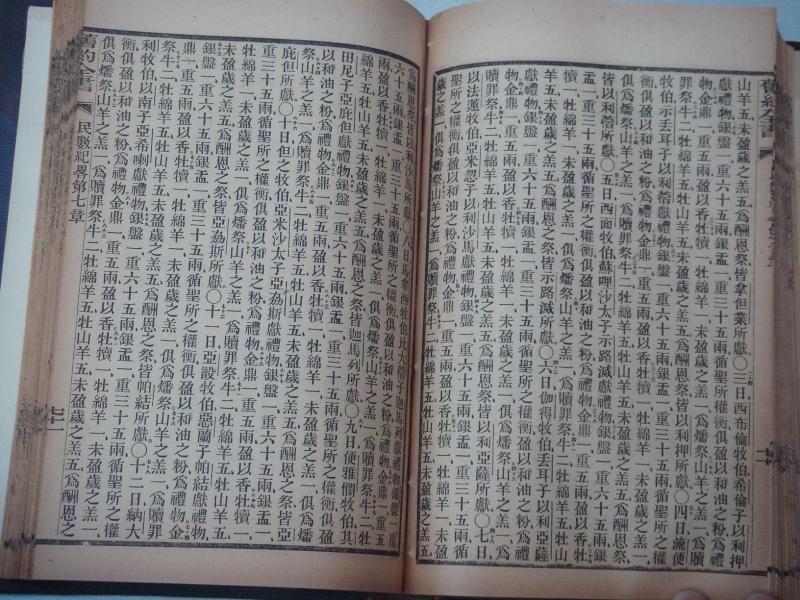 山羊五未盈歲之羔五爲酬恩祭皆拿但業所獻○三日西布倫牧伯希倫子以利押
獻禮物銀盤一重六十五兩銀盂一重三十五兩循聖所之權衡俱盈以和油之粉爲禮
物金鼎一重五兩盈以香牡犢一牡綿羊一未盈歲之羔一俱爲燔祭山羊之羔一爲贖
罪祭牛二牡綿羊五牡山羊五未盈歲之羔五爲酬恩祭皆以利押所獻○四日流便
牧伯示丟耳子以利蓿獻禮物銀盤一重六十五兩銀盂一重三十五兩循聖所之權
衡俱盈以和油之粉爲禮物金鼎一重五兩盈以香牡犢一牡綿羊一未盈歲之羔一
俱爲燔祭山羊之羔一爲贖罪祭牛二牡綿羊五牡山羊五未盈歲之羔五爲酬恩祭
皆以利蓿所獻○五日西面牧伯蘇哩沙太子示路滅獻禮物銀盤一重六十五兩銀
盂一重三十五兩循聖所之權衡俱盈以和油之粉爲禮物金鼎一重五兩盈以香牡
犢一牡綿羊一未盈歲之羔一俱爲燔祭山羊之羔一爲贖罪祭牛二牡綿羊五牡山
羊五未盈歲之羔五爲酬恩祭皆示路滅所獻○六日伽得牧伯丟耳子以利亞薩
獻禮物銀盤一重六十五兩銀盂一重三十五兩循聖所之權衡俱盈以和油之粉爲禮
物金鼎一重五兩盈以香牡犢一牡綿羊一未盈歲之羔一俱爲燔祭山羊之羔一爲
贖罪祭牛二牡綿羊五牡山羊五未盈歲之羔五爲酬恩祭皆以利亞薩所獻○七日
以法蓮牧伯亞米忽子以利沙馬獻禮物銀盤一重六十五兩銀盂一重三十五兩循
聖所之權衡俱盈以和油之粉爲禮物金鼎一重五兩盈以香牡犢一牡綿羊一未盈
歲之羔一俱爲燔祭山羊之羔一爲贖罪祭牛二牡綿羊五牡山羊五未盈歲之羔五
爲酬恩祭皆以利沙馬所獻○八日馬拿西牧伯比大蓿子迦馬列獻禮物銀盤一重
六十五兩銀盂一重三十五兩循聖所之權衡俱盈以和油之粉爲禮物金鼎一重五
兩盈以香牡犢一牡綿羊一未盈歲之羔一俱爲燔祭山羊之羔一爲贖罪祭牛二牡
綿羊五牡山羊五未盈歲之羔五爲酬恩之祭皆迦馬列所獻○九日便雅憫牧伯其
田尼子亞庇但獻禮物銀盤一重六十五兩銀盂一重三十五兩循聖所之權衡俱盈
以和油之粉爲禮物金鼎一重五兩盈以香牡犢一牡綿羊一未盈歲之羔一俱爲燔
祭山羊之羔一爲贖罪祭牛二牡綿羊五牡山羊五未盈歲之羔五爲酬恩之祭皆亞
庇但所獻○十日但之牧伯亞米沙太子亞希以斯獻禮物銀盤一重六十五兩銀盂一
重三十五兩循聖所之權衡俱盈以和油之粉爲禮物金鼎一重五兩盈以香牡犢一
牡綿羊一未盈歲之羔一俱爲燔祭山羊之羔一爲贖罪祭牛二牡綿羊五牡山羊五
未盈歲之羔五爲酬恩之祭皆亞希以斯所獻○十一日亞設牧伯恩蘭子帕結獻禮物
銀盤一重六十五兩銀盂一重三十五兩循聖所之權衡俱盈以和油之粉爲禮物金
鼎一重五兩盈以香牡犢一牡綿羊一未盈歲之羔一俱爲燔祭山羊之羔一爲贖罪
祭牛二牡綿羊五牡山羊五未盈歲之羔五爲酬恩之祭皆帕結所獻○十二日納大
利牧伯以南子亞希喇獻禮物銀盤一重六十五兩銀盂一重三十五兩循聖所之權
衡俱盈以和油之粉爲禮物金鼎一重五兩盈以香牡犢一牡綿羊一未盈歲之羔一
俱爲燔祭山羊之羔一爲贖罪祭牛二牡綿羊五牡山羊五未盈歲之羔五爲酬恩之
舊約全書
民數紀畧第七章